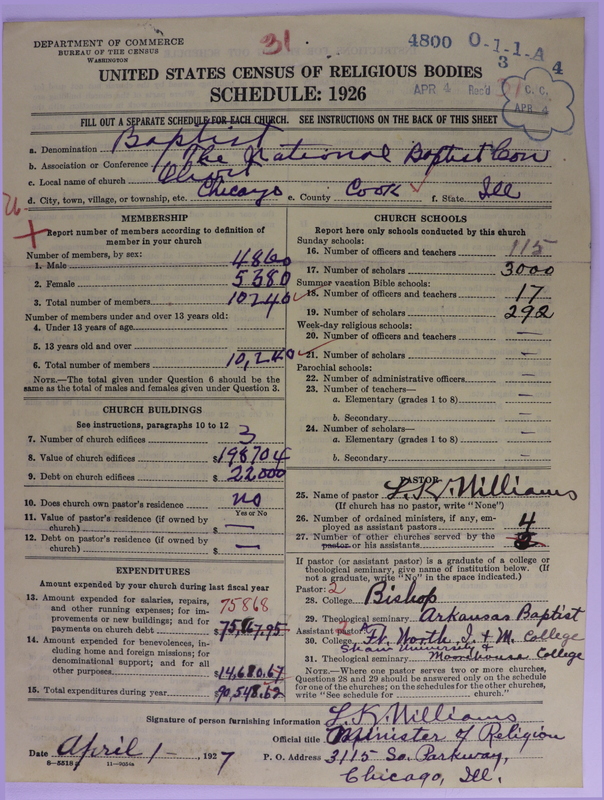 DEPARTMENT OF COMMERCE
BUREAU OF THE CENSUS
WASHINGTON
31
4800 O-1-1-A
3 4
UNITED STATES CENSUS OF RELIGIOUS BODIES
SCHEDULE: 1926
APR 4 Rec'd
C. C.
APR 4
FILL OUT A SEPARATE SCHEDULE FOR EACH CHURCH. SEE INSTRUCTIONS ON THE BACK OF THIS SHEET
a. Denomination Baptist
b. Association or Conference The National Baptist Con
c. Local name of church Olivet
d. City, town, village, or township, etc. Chicago e. County Cook f. State Ill
26
MEMBERSHIP
Report number of members according to definition of
member in your church
Number of members, by sex:
1. Male 4860
2. Female 5380
3. Total number of members 10240
Number of members under and over 13 years old:
4. Under 13 years of age
5. 13 years old and over
6. Total number of members 10,240
NOTE.—The total given under Question 6 should be the
same as the total of males and females given under Question 3.
CHURCH BUILDINGS
See instructions, paragraphs 10 to 12
7. Number of church edifices 3
8. Value of church edifices $198704
9. Debt on church edifices $22000
10. Does church own pastor's residence no
Yes or No
11. Value of pastor's residence (if owned by
church) $ —
12. Debt on pastor's residence (if owned by
church) $ —
EXPENDITURES
Amount expended by your church during last fiscal year
13. Amount expended for salaries, repairs,
and other running expenses; for im-
provements or new buildings; and for
payments on church debt 75868 $75867.95
14. Amount expended for benevolences, in-
cluding home and foreign missions; for
denominational support; and for all
other purposes $14,680.67
15. Total expenditures during year 90,548.62
CHURCH SCHOOLS
Report here only schools conducted by this church
Sunday schools:
16. Number of officers and teachers 115
17. Number of scholars 3000
Summer vacation Bible schools:
18. Number of officers and teachers 17
19. Number of scholars 292
Week-day religious schools:
20. Number of officers and teachers —
21. Number of scholars —
Parochial schools:
22. Number of administrative officers —
23. Number of teachers—
a. Elementary (grades 1 to 8) —
b. Secondary —
24. Number of scholars—
a. Elementary (grades 1 to 8) —
b. Secondary —
PASTOR
25. Name of pastor L. K. Williams
(If church has no pastor, write "None")
26. Number of ordained ministers, if any, em-
ployed as assistant pastors 4
27. Number of other churches served by the
pastor or his assistants
If pastor (or assistant pastor) is a graduate of a college or
theological seminary, give name of institution below. (If
not a graduate, write "No" in the space indicated.)
Pastor: 2
28. College Bishop
29. Theological seminary Arkansas Baptist
Assistant pastor: 2
30. College Ft. Worth I. & M. College
Shaw University &
31. Theological seminary Moorhouse College
NOTE.—Where one pastor serves two or more churches,
Questions 28 and 29 should be answered only on the schedule
for one of the churches; on the schedules for the other churches,
write "See schedule for church."
Signature of person furnishing information L. K. Williams
Official title Minister of Religion
Date April 1—, 1927 P. O. Address 3115 So. Parkway,
8—5518 a 11—9054a Chicago, Ill.